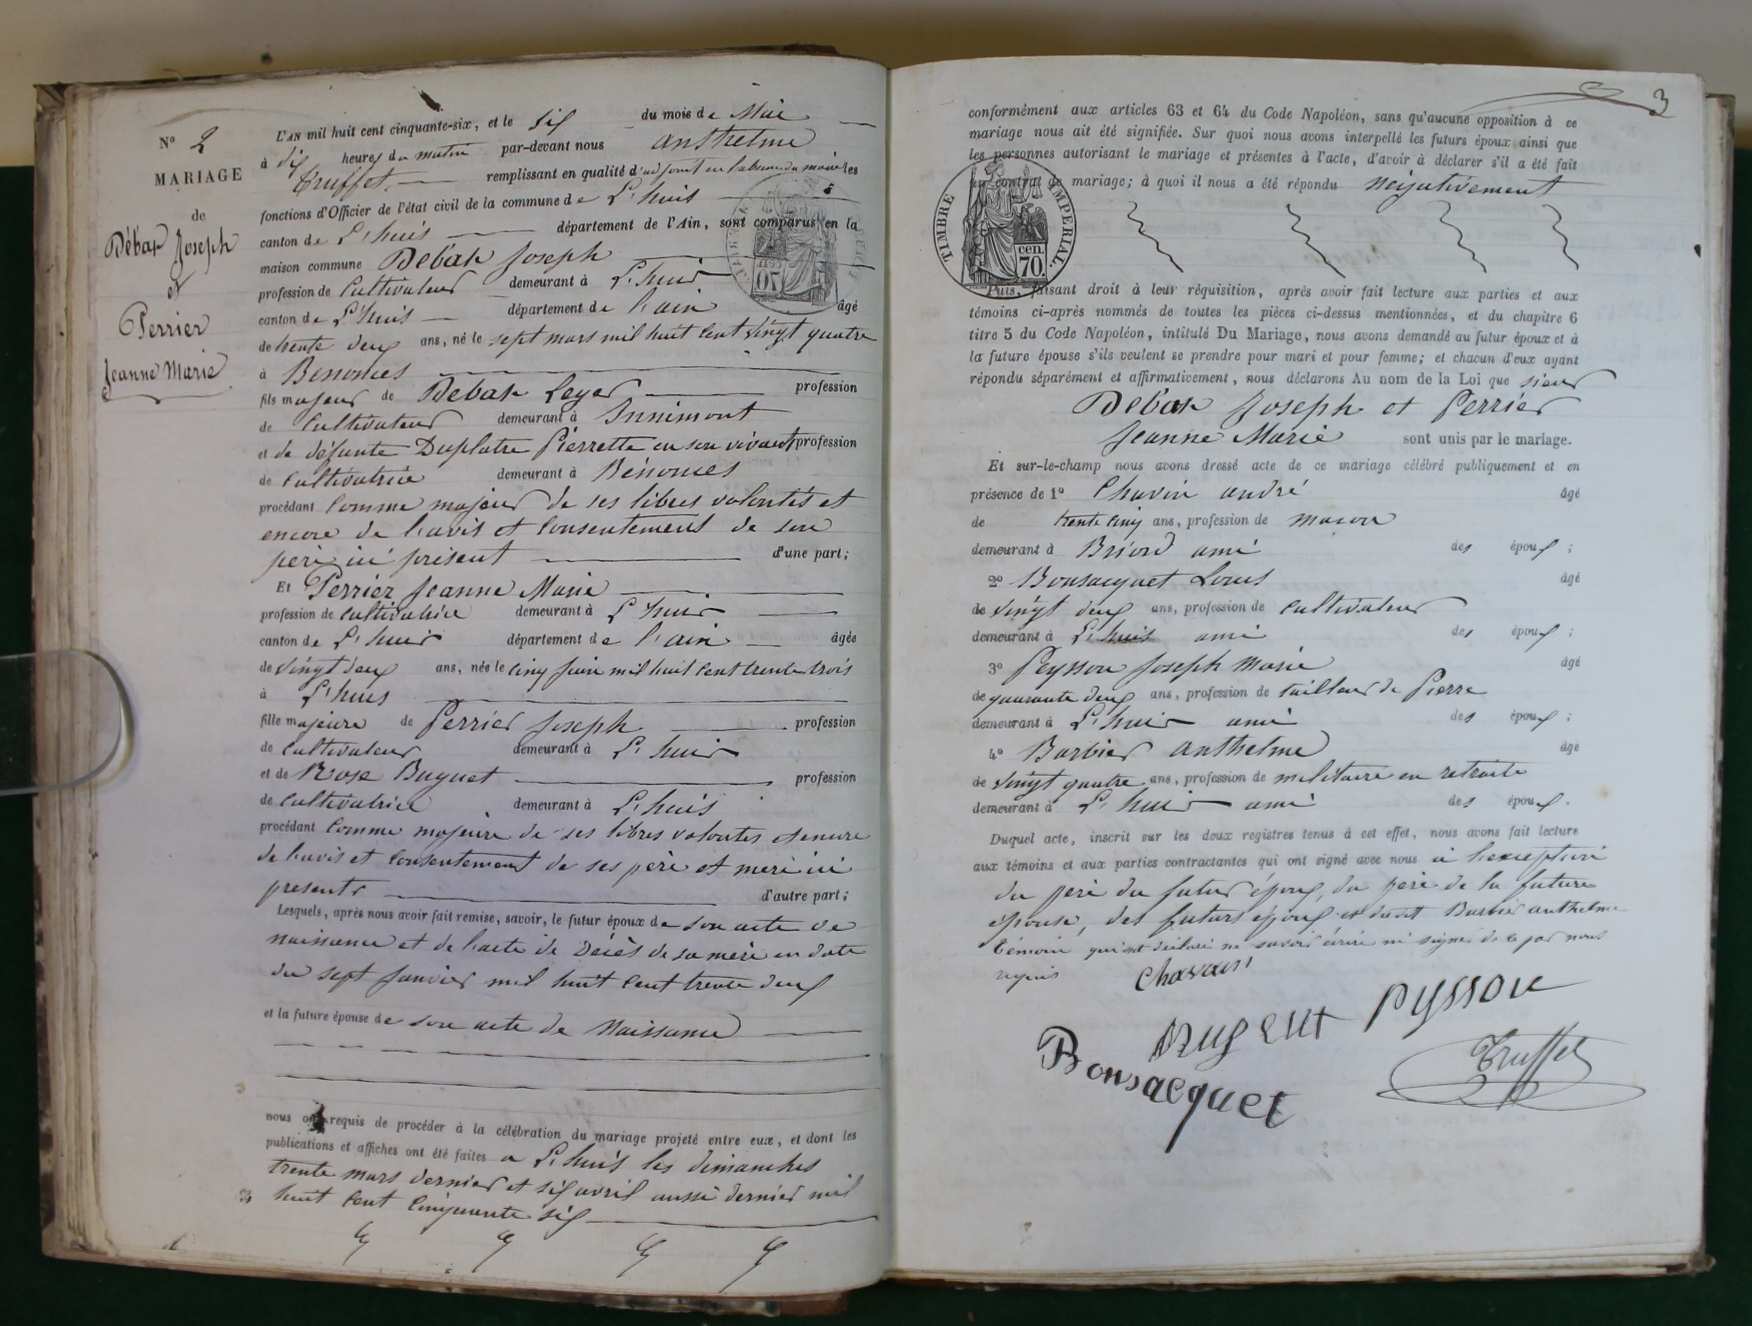 N° 2
MARIAGE
de
Débat Joseph
et
Perrier
Jeanne Marie
L'AN mil huit cent cinquante-six, et le six du mois de Mai
à dix heures du matin par-devant nous Anthelme
Truffet remplissant en qualité d'adjoint en labsence du maire les
fonctions d'Officier de l'état civil de la commune de L'huis
canton de L'huis département de l'Ain, sont comparus en la
maison commune Débat Joseph
profession de Cultivateur demeurant à L'huis
canton de L'huis département de l'ain âgé
de trente deux ans, né le sept mars mil huit cent vingt quatre
à Bénonces
fils majeur de Debat Leger profession
de Cultivateur demeurant à Innimont
et de défunte Duplatre Pierrette en son vivant profession
de cultivatrice demeurant à Bénonces
procédant comme majeur de ses libres volontés et
encore de l'avis et consentement de son
père ici présent d'une part;
Et Perrier Jeanne Marie
profession de cultivatrice demeurant à L'huis
canton de L'huis département de l'ain âgée
de vingt deux ans, née le cinq juin mil huit cent trente trois
à L'huis
fille majeure de Perrier Joseph profession
de cultivateur demeurant à L'huis
et de Rose Buguet profession
de cultivatrice demeurant à L'huis
procédant comme majeure de ses libres volontés et encore
de l'avis et consentement de ses père et mère ici
presents d'autre part;
Lesquels, après nous avoir fait remise, savoir, le futur époux de son acte de
naissance et de l'acte de Décès de sa mère en date
du sept Janvier mil huit cent trente deux
et la future épouse de son acte de Naissance
nous ont requis de procéder à la célébration du mariage projeté entre eux, et dont les
publications et affiches ont été faites a L'huis les dimanches
trente mars dernier et six avril aussi dernier mil
huit cent cinquante six
3
conformément aux articles 63 et 64 du Code Napoléon, sans qu'aucune opposition à ce
mariage nous ait été signifiée. Sur quoi nous avons interpellé les futurs époux ainsi que
les personnes autorisant le mariage et présentes à l'acte, d'avoir à déclarer s'il a été fait
un contrat de mariage; à quoi il nous a été répondu négativement
TIMBRE IMPERIAL.
70 cen.
Puis, faisant droit à leur réquisition, après avoir fait lecture aux parties et aux
témoins ci-après nommés de toutes les pièces ci-dessus mentionnées, et du chapitre 6
titre 5 du Code Napoléon, intitulé Du Mariage, nous avons demandé au futur époux et à
la future épouse s'ils veulent se prendre pour mari et pour femme; et chacun d'eux ayant
répondu séparément et affirmativement, nous déclarons Au nom de la Loi que sieur
Débat Joseph et Perrier
Jeanne Marie sont unis par le mariage.
Et sur-le-champ nous avons dressé acte de ce mariage célébré publiquement et en
présence de 1° Chavin andré âgé
de trente cinq ans, profession de maçon
demeurant à Briord ami des époux;
2° Bonsacquet Louis âgé
de vingt deux ans, profession de cultivateur
demeurant à L'huis ami des époux;
3° Peysson Joseph Marie âgé
de quarante deux ans, profession de tailleur de Pierre
demeurant à L'huis ami des époux;
4° Barbier Anthelme âgé
de vingt quatre ans, profession de militaire en retraite
demeurant à L'huis ami des époux.
Duquel acte, inscrit sur les deux registres tenus à cet effet, nous avons fait lecture
aux témoins et aux parties contractantes qui ont signé avec nous à l'exception
du père du futur époux, du père de la future
épouse, des futurs époux et dudit Barbier anthelme
témoin qui ont déclaré ne savoir écrire ni signer de ce par nous
requis
Peysson
Bonsacquet
Truffet